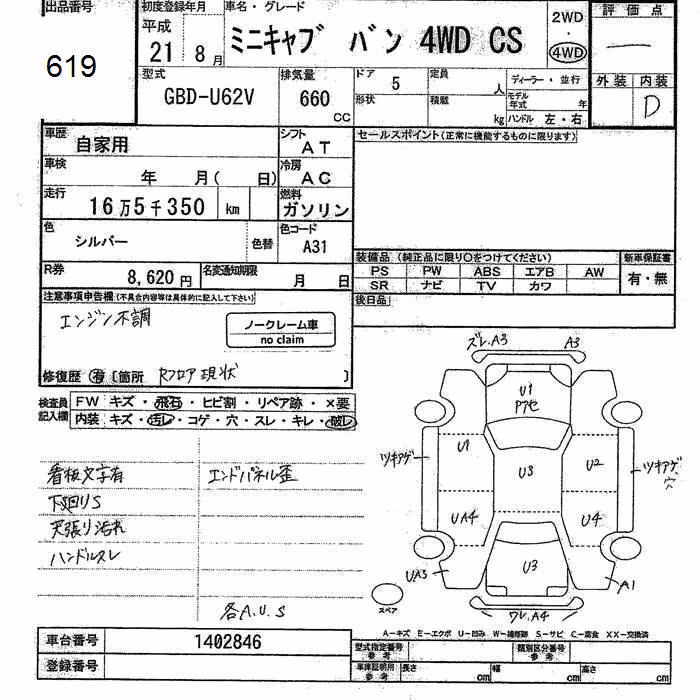 出品番号
619
初度登録年月
平成
21 8月
車名・グレード
ミニキャブ バン 4WD CS
2WD
・
4WD
評価点
外装 内装
D
型式
GBD-U62V
排気量
660
CC
ドア 5
形状
定員 人
積載 kg
ディーラー・並行
モデル年式 年
ハンドル 左・右
車歴
自家用
シフト
AT
車検
年 月( 日)
冷房
AC
走行
16万5千350 km
燃料
ガソリン
色
シルバー
色替
色コード
A31
R券
8,620円
名変通知期限
月 日
セールスポイント(正常に機能するものに限ります)
装備品 (純正品に限り○をつけてください)
新車保証書
PS PW ABS エアB AW
SR ナビ TV カワ
有・無
後日品
注意事項申告欄(不具合内容等は具体的に記入して下さい)
エンジン不調
ノークレーム車
no claim
修復歴 有 [箇所 Rフロア現状 ]
検査員記入欄
FW キズ・飛石・ヒビ割・リペア跡・×要
内装 キズ・汚レ・コゲ・穴・スレ・キレ・破レ
看板文字有
エンドパネル歪
下廻りS
天張り汚れ
ハンドルスレ
各A.U.S
ズレ.A3
A3
U1
アセ
ツキアゲ
U1
U3
U2
ツキアゲ.穴
UA4
U4
UA3
U3
A1
ワレ.A4
スペア
A-キズ E-エクボ U-凹み W-補修跡 S-サビ C-腐食 XX-交換済
車台番号
1402846
登録番号
型式指定番号
参考
類別区分番号
参考
車庫証明用
参考
長さ cm
幅 cm
高さ cm